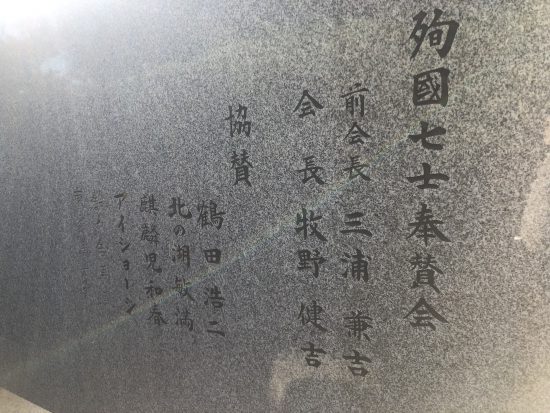 殉國七士奉賛会
前会長 三浦兼吉
会長 牧野健吉
協賛
鶴田浩二
北の湖敏満
麒麟児和春
アイジョージ